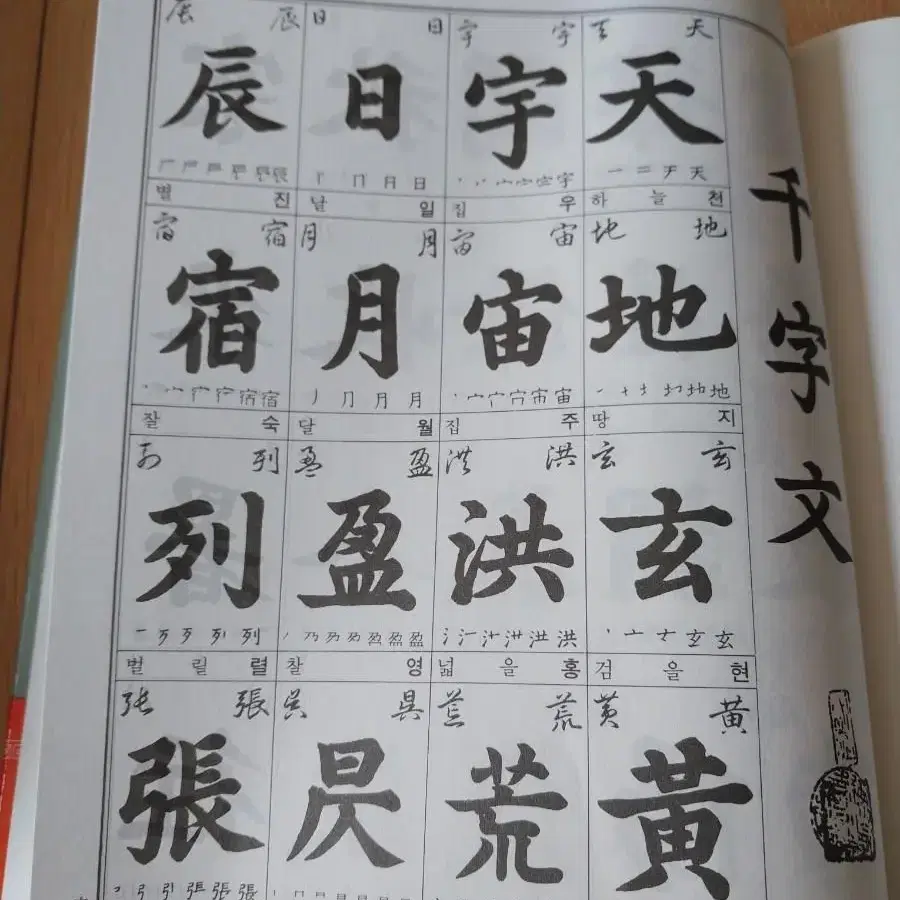 千字文
天 天
天
하 늘 천
地 地
地
땅 지
玄 玄
玄
검 을 현
黃 黃
黃
宇 宇
宇
집 우
宙 宙
宙
집 주
洪 洪
洪
넓 을 홍
荒 荒
荒
日 日
日
날 일
月 月
月
달 월
盈 盈
盈
찰 영
昃 昃
昃
辰 辰
辰
별 진
宿 宿
宿
잘 숙
列 列
列
벌 릴 렬
張 張
張